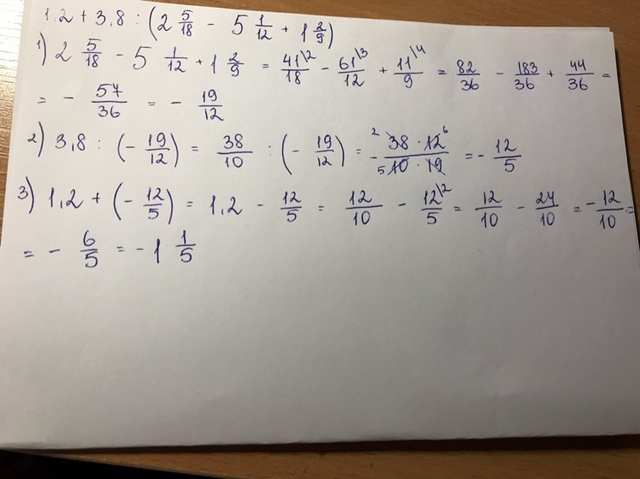 1,2 + 3,8 : (2 5/18 - 5 1/12 + 1 2/9)
1) 2 5/18 - 5 1/12 + 1 2/9 = 41\2/18 - 61\3/12 + 11\4/9 = 82/36 - 183/36 + 44/36 =
= - 57/36 = - 19/12
2) 3,8 : (- 19/12) = 38/10 : (- 19/12) = - 2 38 · 12 6/5 10 · 19 = - 12/5
3) 1,2 + (- 12/5) = 1,2 - 12/5 = 12/10 - 12\2/5 = 12/10 - 24/10 = - 12/10 =
= - 6/5 = - 1 1/5